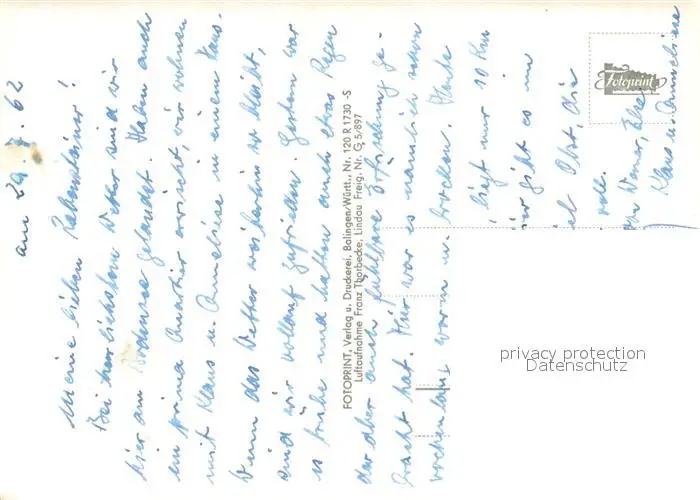 am 29.7.62
Meine lieben Rabensteiner!
Bei herrlichstem Wetter sind wir
hier am Bodensee gelandet. Haben auch
ein prima Quartier erwischt, wir wohnen
mit Klaus u. Anneliese in einem Haus.
Wenn das Wetter weiterhin so bleibt,
sind wir vollauf zufrieden. Gestern war
es trübe und hatten auch etwas Regen
der aber auch fühlbare Erfrischung ge-
bracht hat. Hier war es nämlich schon
wochenlang warm u. trocken.
liegt nur 10 km
hier gibt es in
viel Obst, die
voll.
Werner, Else
Klaus u. Anneliese
FOTOPRINT, Verlag u. Druckerei, Balingen/Württ., Nr. 120 R 1730 -S
Luftaufnahme Franz Thorbecke, Lindau Freig. Nr. G 5/897
Fotoprint
privacy protection
Datenschutz